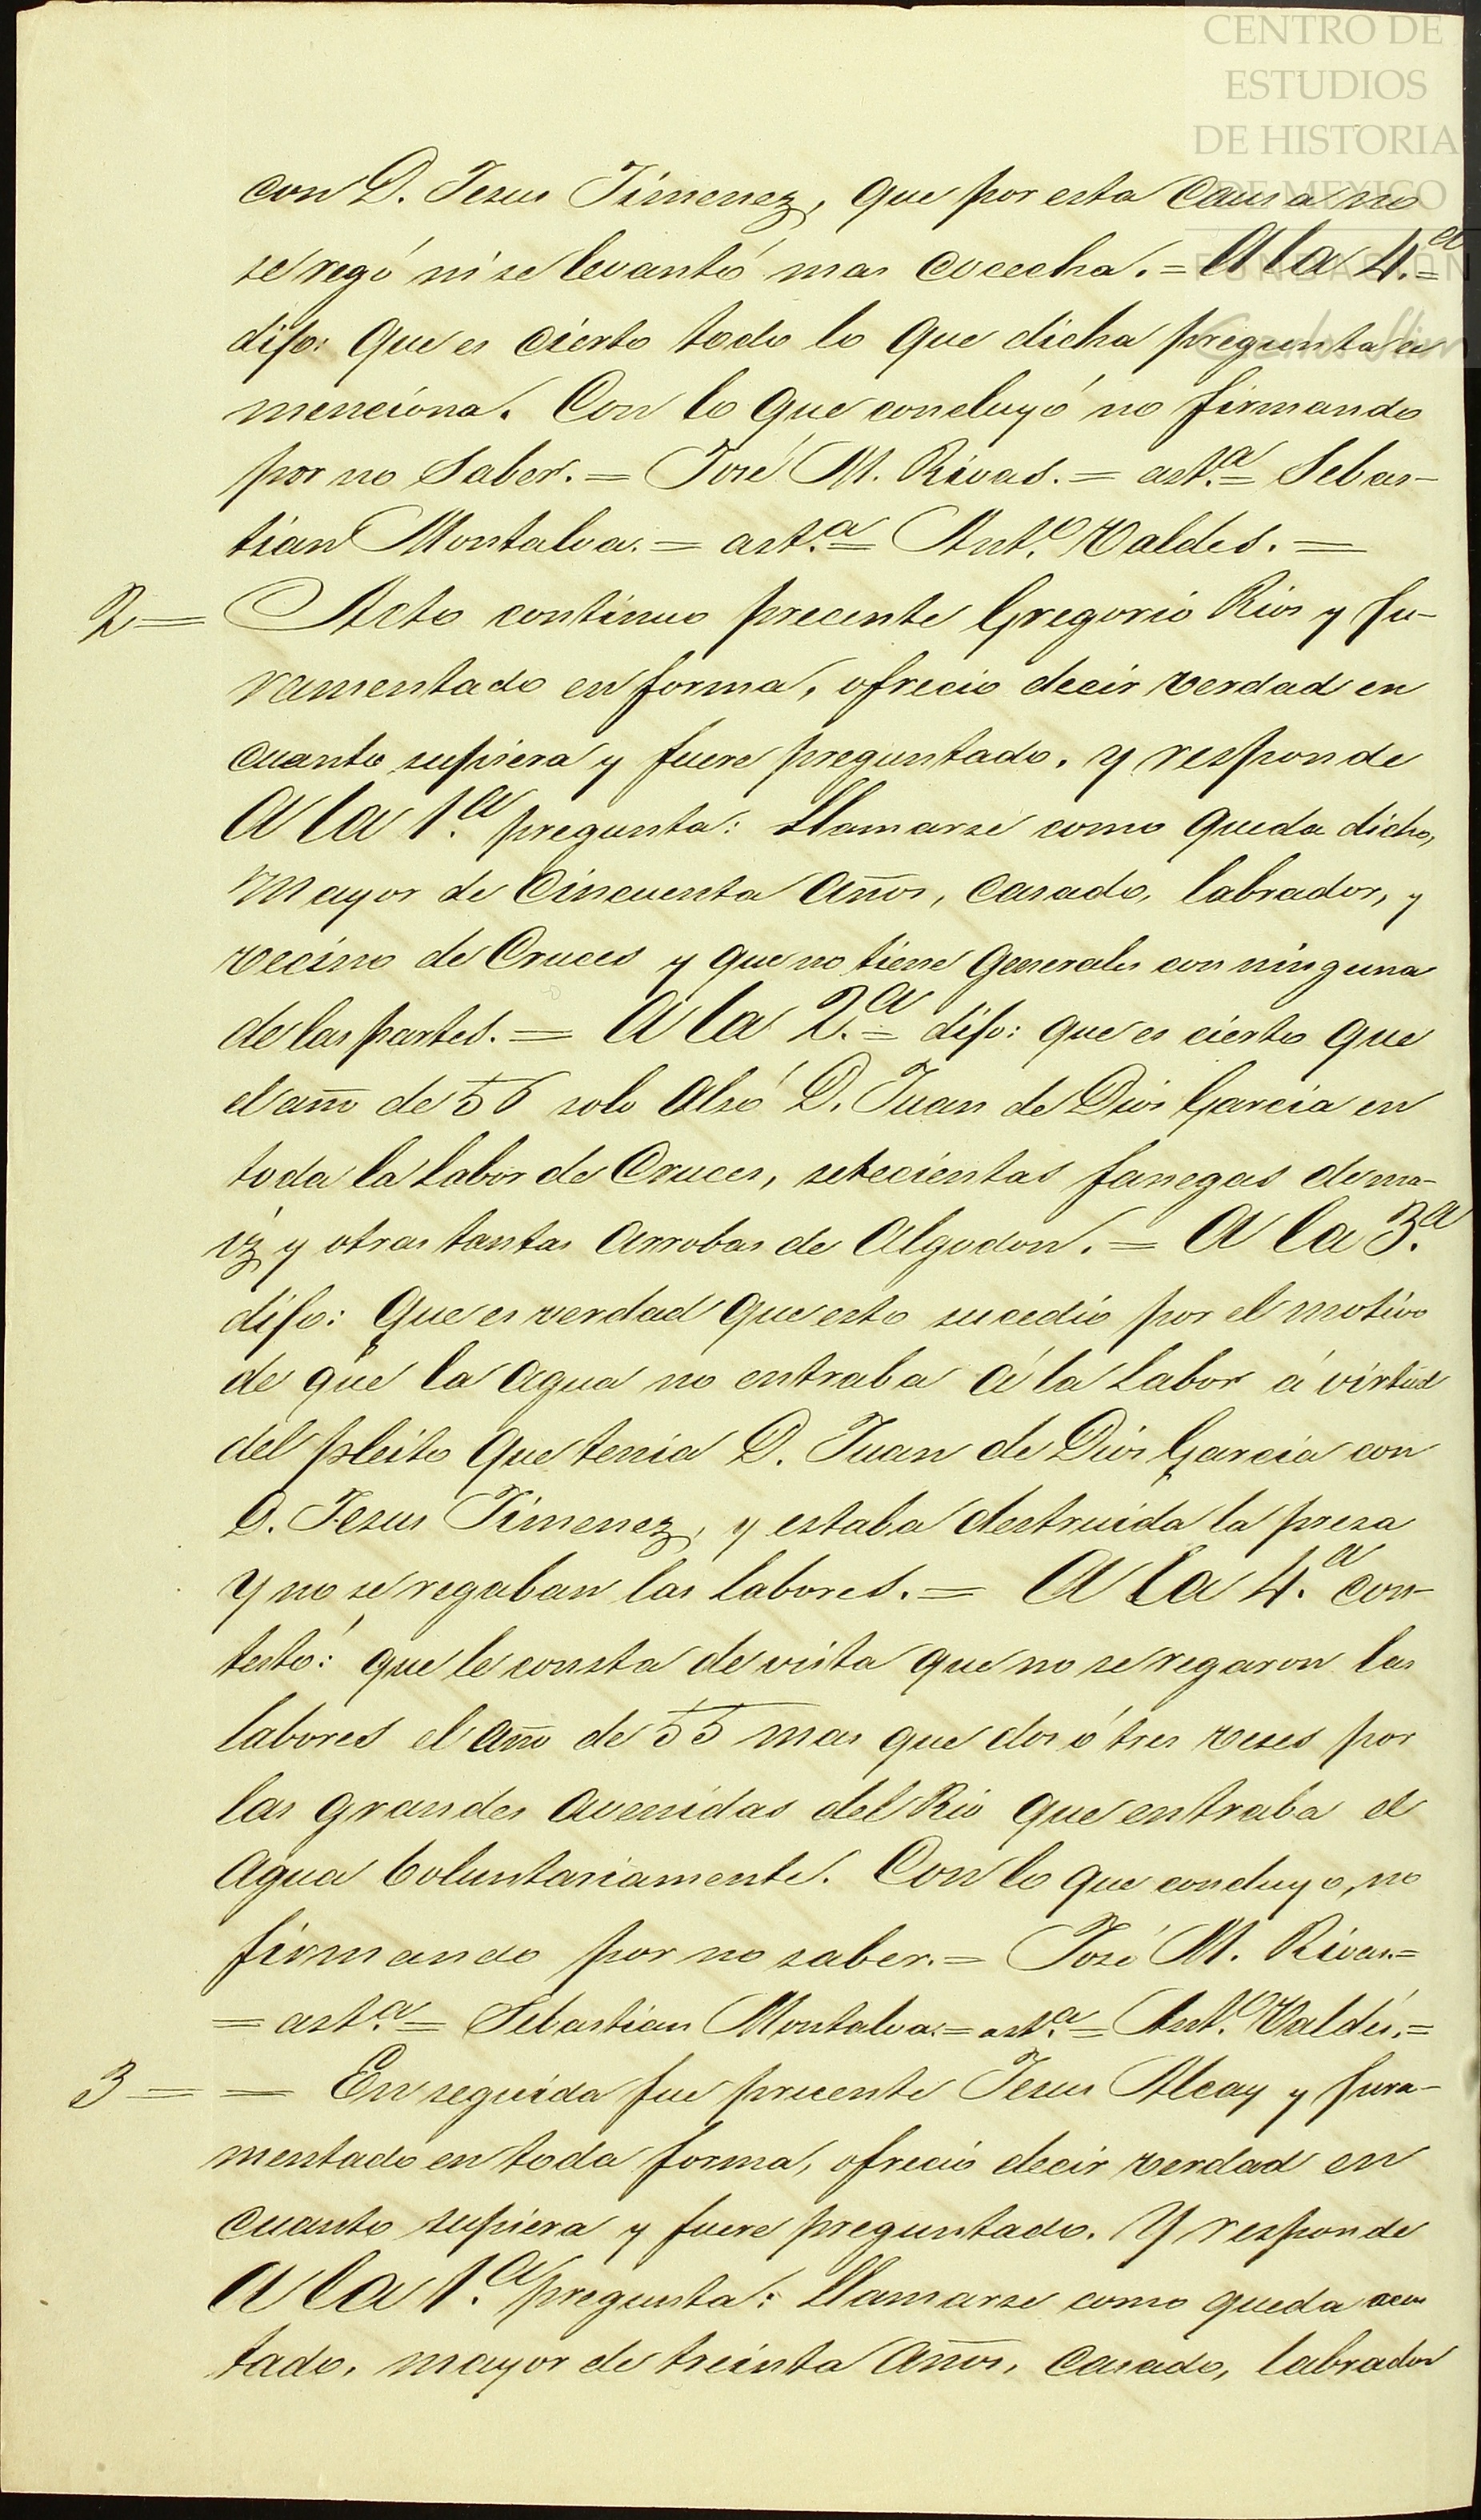 CENTRO DE
ESTUDIOS
DE HISTORIA
DE MEXICO
FUNDACIÓN
con D. Jesus Jimenez, que por esta causa no
se regó ni se levantó mas cocecha. = A la 4.ª =
dijo: Que es cierto todo lo que dicha pregunta
menciona. Con lo que concluyó no firmando
por no Saber. = José M. Rivas. = ast.ª = Sebas-
tian Montalva. = ast.ª = Ant.º Valdes. =
2 = Acto continuo precente Gregorio Rios y ju-
ramentado en forma, ofrecio decir verdad en
cuanto supiera y fuere preguntado. y responde
A la 1.ª pregunta: Llamarse como queda dicho,
Mayor de Cincuenta años, casado, labrador, y
vecino de Cruces y que no tiene Generales con ninguna
de las partes. = A la 2.ª = dijo: que es cierto que
el año de 56 solo alsó D. Juan de Dios Garcia en
toda la Labor de Cruces, setecientas fanegas de ma-
iz y otras tantas arrobas de algodon. = A la 3.ª
dijo: Que es verdad que esto sucedió por el motivo
de que la agua no entraba á la Labor á virtud
del pleito que tenia D. Juan de Dios Garcia con
D. Jesus Jimenez, y estaba destruida la presa
y no se regaban las labores. = A la 4.ª con-
testó: que le consta de vista que no se regaron las
labores el año de 55 mas que dos ó tres veses por
las grandes avenidas del Rio que entraba el
agua boluntariamente. Con lo que concluyo, no
firmando por no saber. = José M. Rivas. =
= ast.ª = Sebastian Montalva. = ast.ª = Ant.º Valdés. =
3 = = En seguida fue precente Jesus Alcay y jura-
mentado en toda forma, ofreció decir verdad en
cuanto supiera y fuere preguntado. Y responde
A la 1.ª pregunta: Llamarse como queda
tado, mayor de treinta años, casado, labrador